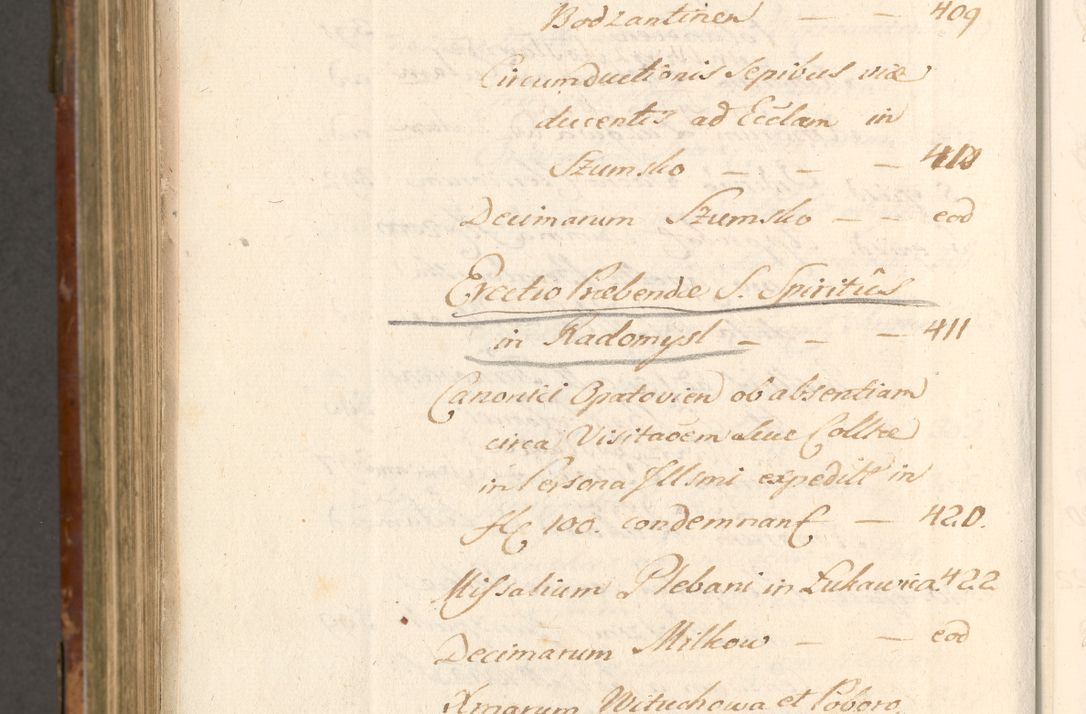 Bodzantinen — — 409
Circumductionis Sepibus viæ
ducentis ad Eccľam in
Szumsko — — — 410
Decimarum Szumsko — — eod
Erectio Præbendæ S. Spiritûs
in Radomysl — — — 411
Canonici Opatovien ob absentiam
circa Visitaõem suæ Collæ
in Persona Illsmi expedit in
100. condemnant — 420.
Missalium Plebani in Łukawica 422
Decimarum Milkow — — eod
Xmarum Wituchowa et Poboro